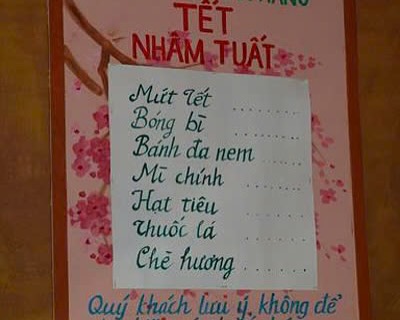 TẾT
NHÂM TUẤT
Mứt Tết ........
Bóng bì ........
Bánh đa nem .....
Mì chính ......
Hạt tiêu ......
Thuốc lá ......
Chè hương ......
Quý khách lưu ý, không để